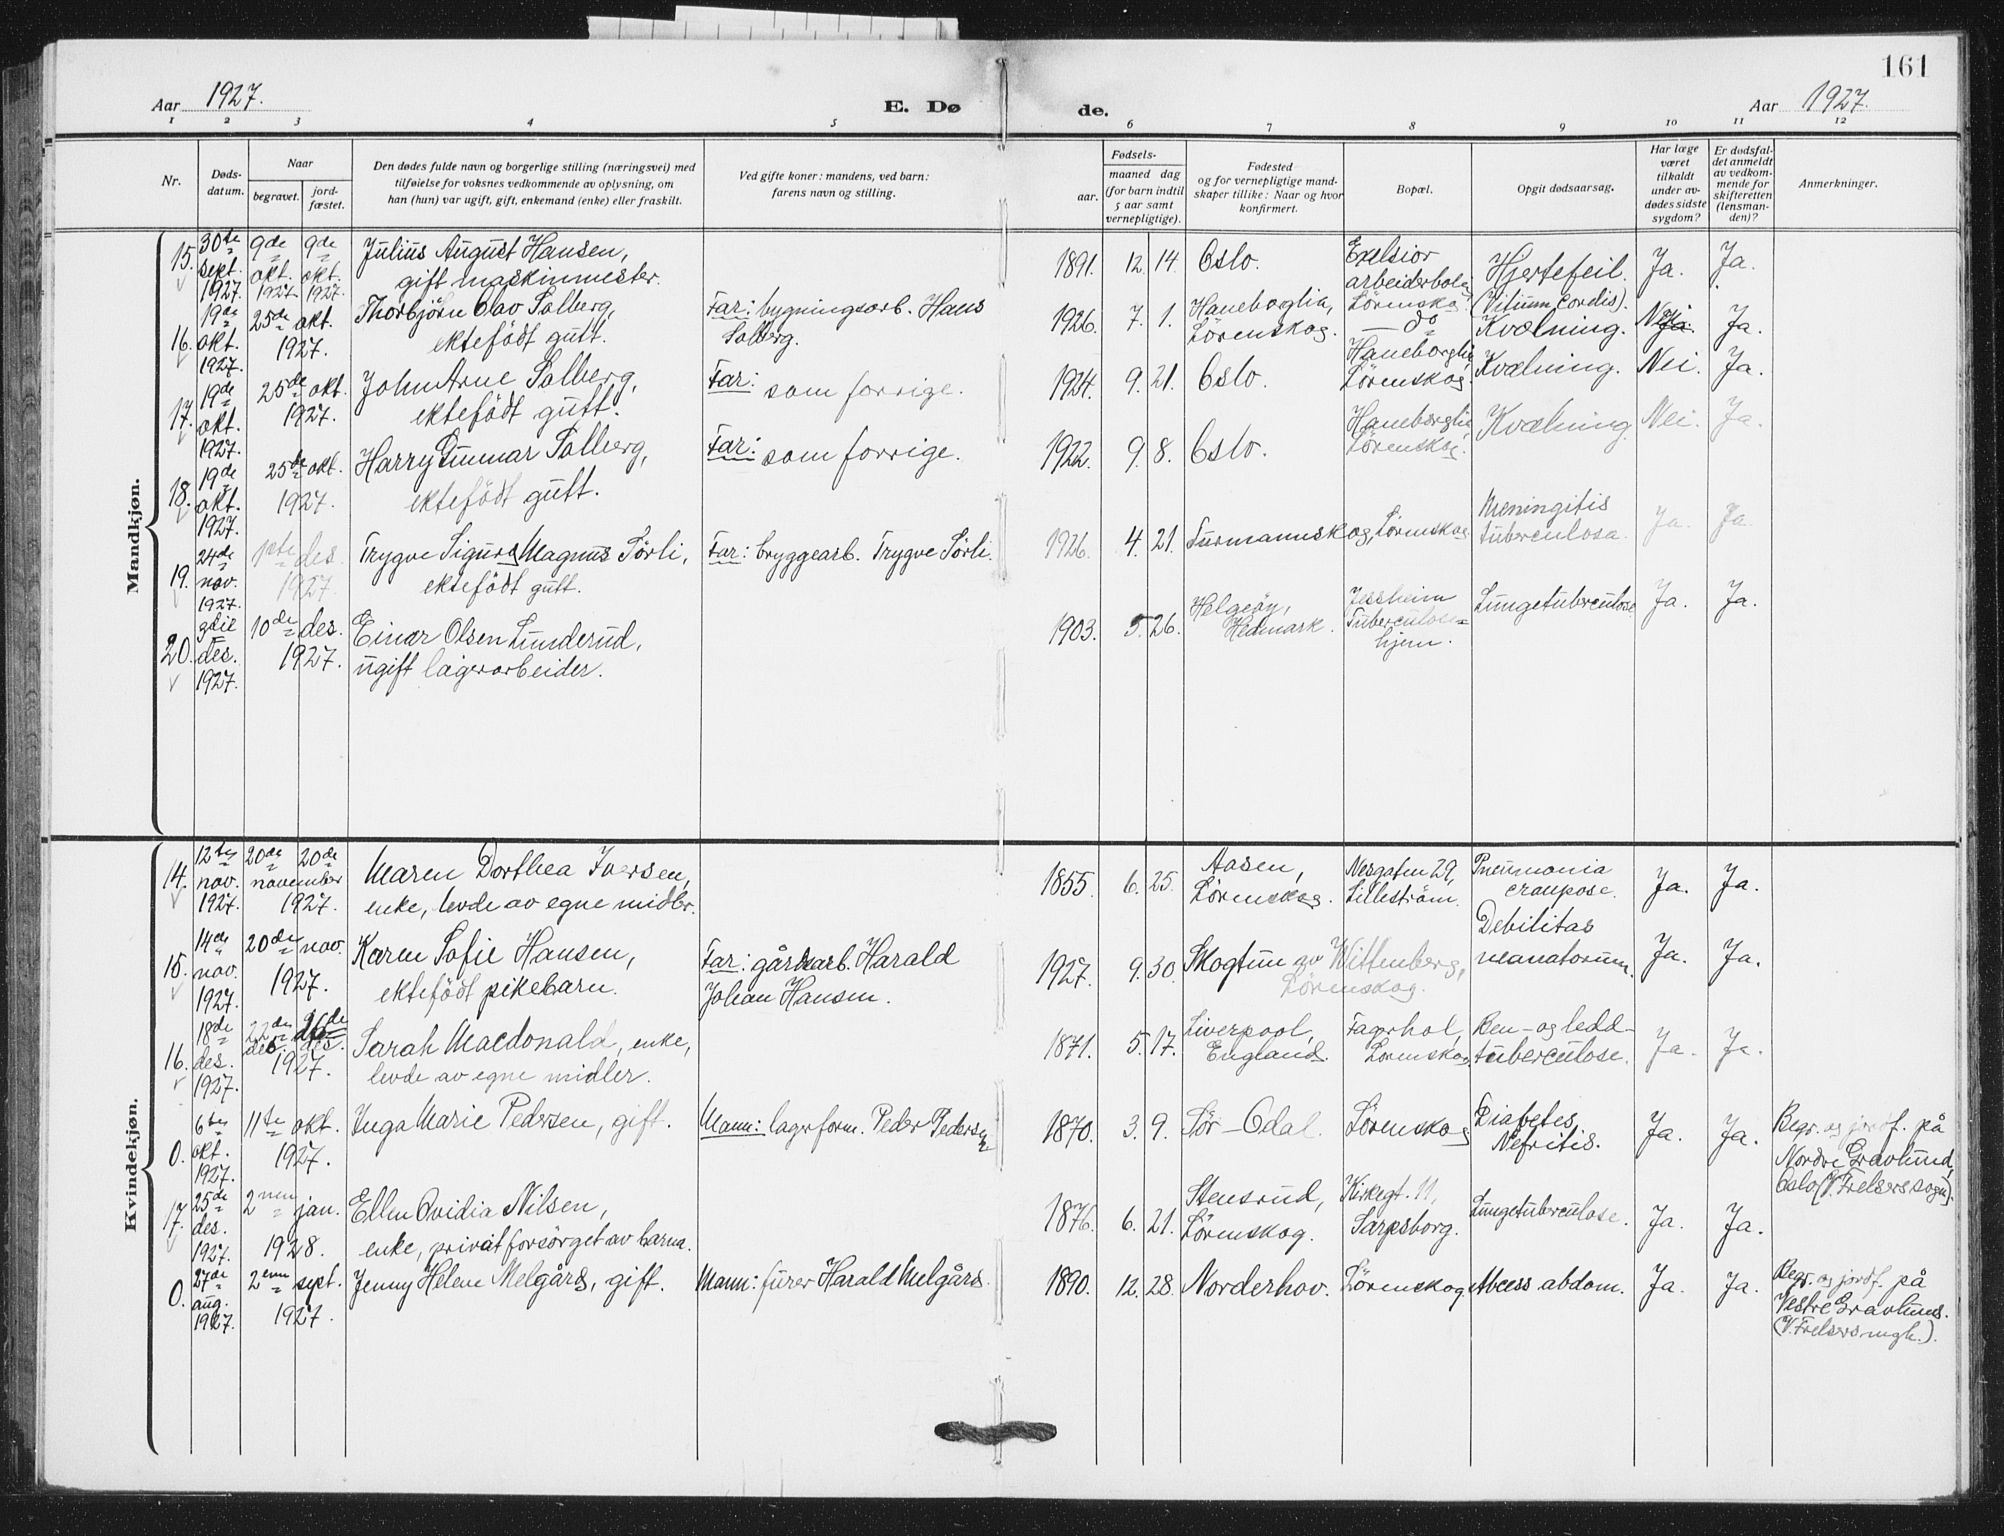 161
Aar 1927.
E. Døde.
Aar 1927.
1 2 3 4 5 6 7 8 9 10 11 12
Nr.
Døds-
datum.
Naar
begravet.
jord-
fæstet.
Den dødes fulde navn og borgerlige stilling (næringsvei) med
tilføielse for voksnes vedkommende av oplysning, om
han (hun) var ugift, gift, enkemand (enke) eller fraskilt.
Ved gifte koner: mandens, ved barn:
farens navn og stilling.
Fødsels-
aar.
maaned dag
(for barn indtil
5 aar samt
vernepligtige).
Fødested
og for vernepligtige mand-
skaper tillike: Naar og hvor
konfirmert.
Bopæl.
Opgit dødsaarsag.
Har læge
været
tilkaldt
under av-
dødes sidste
sygdom?
Er dødsfal-
det anmeldt
av vedkom-
mende for
skifteretten
(lensman-
den)?
Anmerkninger.
Mandkjøn.
15. 30te sept. 1927. 9de okt. 1927. 9de okt. 1927.
Julius August Hansen,
gift maskinmester.
1891. 12. 14. Oslo.
Exelsior
arbeiderbolig
Lörenskog.
Hjertefeil.
(Vitium cordis).
Ja. Ja.
16. 19de okt. 1927. 25de okt. 1927.
Thorbjörn Olav Solberg,
ektefödt gutt.
Far: bygningsarb. Hans
Solberg.
1926. 7. 1. Haneborglia,
Lörenskog.
— do
Kvælning. Nei Ja.
17. 19de okt. 1927. 25de okt. 1927.
John Arne Solberg,
ektefödt gutt.
Far: som forrige.
1924. 9. 21. Oslo.
Haneborglia
Lörenskog.
Kvælning. Nei. Ja.
18. 19de okt. 1927. 25de okt. 1927.
Harry Gunnar Solberg,
ektefödt gutt.
Far: som forrige.
1922. 9. 8. Oslo.
Haneborglia
Lörenskog.
Kvælning Nei. Ja.
19. 24de nov. 1927. 1ste des. 1927.
Trygve Sigurd Magnus Sörli,
ektefödt gutt.
Far: bryggearb. Trygve Sörli.
1926. 4. 21. Furmannskog, Lörenskog.
Meningitis
tuberculosa.
Ja. Ja
20. 3die des. 1927. 10de des. 1927.
Einar Olsen Lunderud,
ugift lagerarbeider.
1903. 5. 26. Helgeöy,
Hedmark.
Jessheim
Tuberculose=
hjem.
Lungetuberculose Ja. Ja.
Kvindekjøn.
14. 12te nov. 1927. 20de 20de november 1927.
Maren Dorthea Iversen,
enke, levde av egne midler.
1855. 6. 25. Aasen,
Lörenskog.
Nesgaten 29,
Lilleström.
Pneumonia
croupose.
Ja. Ja.
15. 14de nov. 1927. 20de nov. 1927.
Karen Sofie Hansen,
ektefödt pikebarn.
Far: gårdsarb. Harald
Johan Hansen.
1927. 9. 30. Skogtun av Wittenberg,
Lörenskog.
Debilitas
neonatorum.
Ja. Ja.
16. 18de des. 1927. 22de des. 26de des. 1927.
Sarah Macdonald, enke,
levde av egne midler.
1871. 5. 17. Liverpool,
England.
Fagerhol,
Lörenskog.
Ben- og ledd-
tuberculose.
Ja. Ja.
0. 6te okt. 1927. 11te okt. 1927.
Inga Marie Pedersen, gift.
Mann: lagerform. Peder Pedersen
1870. 3. 9. Sör-Odal. Lörenskog
Diabetes,
Nefritis.
Ja. Ja.
Begr. og jordf. på
Nordre Gravlund,
Oslo (V. Frelsers sogn).
17. 25de des. 1927. 2nen jan. 1928.
Ellen Ovidia Nilsen,
enke, privat forsörget av barna.
1876. 6. 21. Stensrud,
Lörenskog.
Kirkegt. 11,
Sarpsborg.
Lungetuberculose. Ja. Ja.
0. 27de aug. 1927. 2nen sept. 1927.
Jenny Helene Melgård, gift.
Mann: fürer Harald Melgård.
1890. 12. 28. Norderhov. Lörenskog Abcess abdom. Ja. Ja.
Begr. og jordf. på
Vestre Gravlund.
(V. Frelsers mgh.).